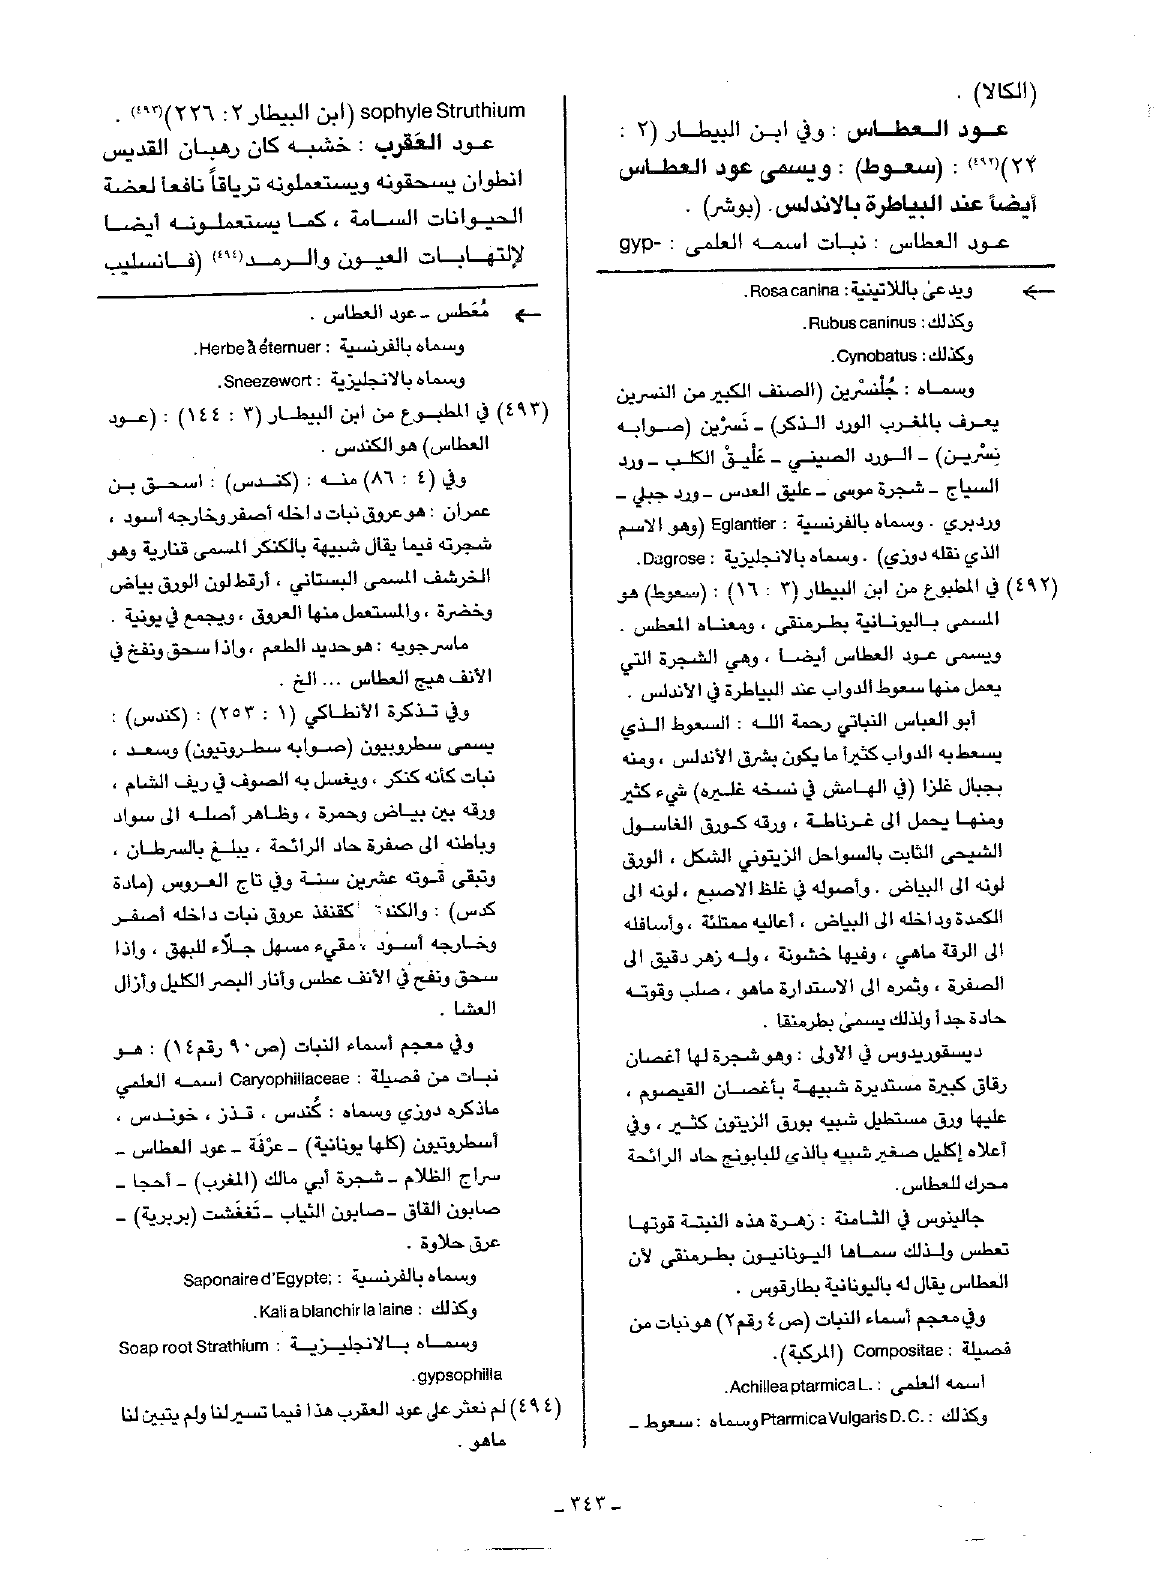 (الكالا) .
عود العطاس : وفي ابن البيطار (٢ :
٢٤)(٤٩٢) : (سعوط) : ويسمى عود العطاس
أيضاً عند البياطرة بالاندلس. (بوشر) .
عود العطاس : نبات اسمه العلمي : gyp-
sophyle Struthium (ابن البيطار ٢: ٢٢٦)(٤٩٣) .
عود العَقرب : خشبه كان رهبان القديس
انطوان يسحقونه ويستعملونه ترياقاً نافعا لعضة
الحيوانات السامة ، كما يستعملونه أيضا
لإلتهابات العيون والرمد(٤٩٤) (فانسليب
← ويدعى باللاتينية: Rosa canina.
وكذلك: Rubus caninus.
وكذلك: Cynobatus.
وسماه : جُلْنسْرين (الصنف الكبير من النسرين
يعرف بالمغرب الورد الذكر) – نَسرْين (صوابه
نِسْرْين) – الورد الصيني – عَلْيقْ الكلب – ورد
السياج – شجرة موسى – عليق العدس – ورد جبلي –
وردبري . وسماه بالفرنسية : Eglantier (وهو الاسم
الذي نقله دوزي) . وسماه بالانجليزية : Dagrose.
(٤٩٢) في المطبوع من ابن البيطار (٣ : ١٦) : (سعوط) هو
المسمى باليونانية بطرمنقي ، ومعناه المعطس .
ويسمى عود العطاس أيضا ، وهي الشجرة التي
يعمل منها سعوط الدواب عند البياطرة في الأندلس .
أبو العباس النباتي رحمة الله : السعوط الذي
يسعط به الدواب كثيراً ما يكون بشرق الأندلس ، ومنه
بجبال غلزا (في الهامش في نسخه غليره) شيء كثير
ومنها يحمل الى غرناطة ، ورقه كورق الغاسول
الشيحى الثابت بالسواحل الزيتوني الشكل ، الورق
لونه الى البياض . وأصوله في غلظ الاصبع ، لونه الى
الكمدة وداخله الى البياض ، أعاليه ممتلئة ، وأسافله
الى الرقة ماهي ، وفيها خشونة ، وله زهر دقيق الى
الصفرة ، وثمره الى الاستدارة ماهو ، صلب وقوته
حادة جدأ ولذلك يسمى بطرمنقا .
ديسقوريدوس في الأولى : وهو شجرة لها أغصان
رقاق كبيرة مستديرة شبيهة بأغصان القيصوم ،
عليها ورق مستطيل شبيه بورق الزيتون كثير ، وفي
أعلاه إكليل صغير شبيه بالذي للبابونج حاد الرائحة
محرك للعطاس.
جالينوس في الثامنة : زهرة هذه النبتة قوتها
تعطس ولذلك سماها اليونانيون بطرمنقى لأن
العطاس يقال له باليونانية بطارقوس .
وفي معجم أسماء النبات (ص ٤ رقم ٢) هو نبات من
فصيلة : Compositae (المركبة).
اسمه العلمى : Achillea ptarmica L.
وكذلك : Ptarmica Vulgaris D. C. وسماه : سعوط –
← مُعَطس – عود العطاس .
وسماه بالفرنسية : Herbe à éternuer.
وسماه بالانجليزية : Sneezewort.
(٤٩٣) في المطبوع من ابن البيطار (٣ : ١٤٤) : (عود
العطاس) هو الكندس .
وفي (٤ : ٨٦) منه : (كندس) : اسحق بن
عمران : هو عروق نبات داخله أصفر وخارجه أسود ،
شجرته فيما يقال شبيهة بالكنكر المسمى قنارية وهو
الخرشف المسمى البستاني ، أرقط لون الورق بياض
وخضرة ، والمستعمل منها العروق ، ويجمع في يونية .
ماسرجويه : هو حديد الطعم ، واذا سحق ونفخ في
الأنف هيج العطاس ... الخ .
وفي تذكرة الأنطاكي (١ : ٢٥٣) : (كندس) :
يسمى سطروبيون (صوابه سطروتيون) وسعد ،
نبات كأنه كنكر ، ويغسل به الصوف في ريف الشام ،
ورقه بين بياض وحمرة ، وظاهر أصله الى سواد
وباطنه الى صفرة حاد الرائحة ، يبلغ بالسرطان ،
وتبقى قوته عشرين سنة وفي تاج العروس (مادة
كدس) : والكند كقنفذ عروق نبات داخله أصفر
وخارجه أسود ، مقيء مسهل جلاّء للبهق ، واذا
سحق ونفخ في الأنف عطس وأنار البصر الكليل وأزال
العشا .
وفي معجم أسماء النبات (ص ٩٠ رقم ١٤) : هو
نبات من فصيلة : Caryophillaceae اسمه العلمي
ماذكره دوزي وسماه : كُندس ، قذز ، خوندس ،
أسطروتيون (كلها يونانية) – عرْقَة – عود العطاس –
سراج الظلام – شجرة أبي مالك (المغرب) – أحجا –
صابون القاق – صابون الثياب – تَغفشت (بربرية) –
عرق حلاوة .
وسماه بالفرنسية : Saponaire d'Egypte;
وكذلك : Kali a blanchir la laine.
وسماه بالانجليزية : Soap root Strathium
gypsophilla.
(٤٩٤) لم نعثر على عود العقرب هذا فيما تسير لنا ولم يتبين لنا
ماهو .
– ٣٤٣ –